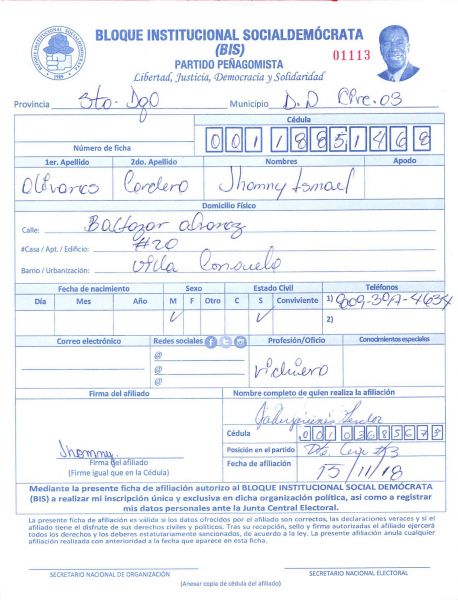 BLOQUE INSTITUCIONAL SOCIALDEMÓCRATA
(BIS)
PARTIDO PEÑAGOMISTA
Libertad, Justicia, Democracia y Solidaridad
01113
BLOQUE INSTITUCIONAL SOCIALDEMÓCRATA
Provincia Sto. Dgo Municipio D.D CPre. 03
Cédula
Número de ficha 00118851468
1er. Apellido 2do. Apellido Nombres Apodo
Olivares Cordero Jhonny Ismael
Domicilio Físico
Calle: Baltazar alvarez
#Casa / Apt. / Edificio: #20
Barrio / Urbanización: Villa Consuelo
Fecha de nacimiento Sexo Estado Civil Teléfonos
Día Mes Año M F Otro C S Conviviente 1) 809-307-4634
2)
Correo electrónico Redes sociales Profesión/Oficio Conocimientos especiales
@
@
@
Firma del afiliado Nombre completo de quien realiza la afiliación
Cédula
00103685673
Jhonny
Posición en el partido
Firma del afiliado
(Firme igual que en la Cédula)
Fecha de afiliación 15/11/18
Mediante la presente ficha de afiliación autorizo al BLOQUE INSTITUCIONAL SOCIAL DEMÓCRATA
(BIS) a realizar mi inscripción única y exclusiva en dicha organización política, así como a registrar
mis datos personales ante la Junta Central Electoral.
La presente ficha de afiliación es válida si los datos ofrecidos por el afiliado son correctos, las declaraciones veraces y si el
afiliado tiene el disfrute de sus derechos civiles y políticos. Tras su recepción, sello y firma autorizadas el afiliado ejercerá
todos los derechos y los deberes estatutariamente sancionados, de acuerdo a la ley. La presente afiliación anula cualquier
afiliación realizada con anterioridad a la fecha que aparece en esta ficha.
SECRETARIO NACIONAL DE ORGANIZACIÓN SECRETARIO NACIONAL ELECTORAL
(Anexar copia de cédula del afiliado)